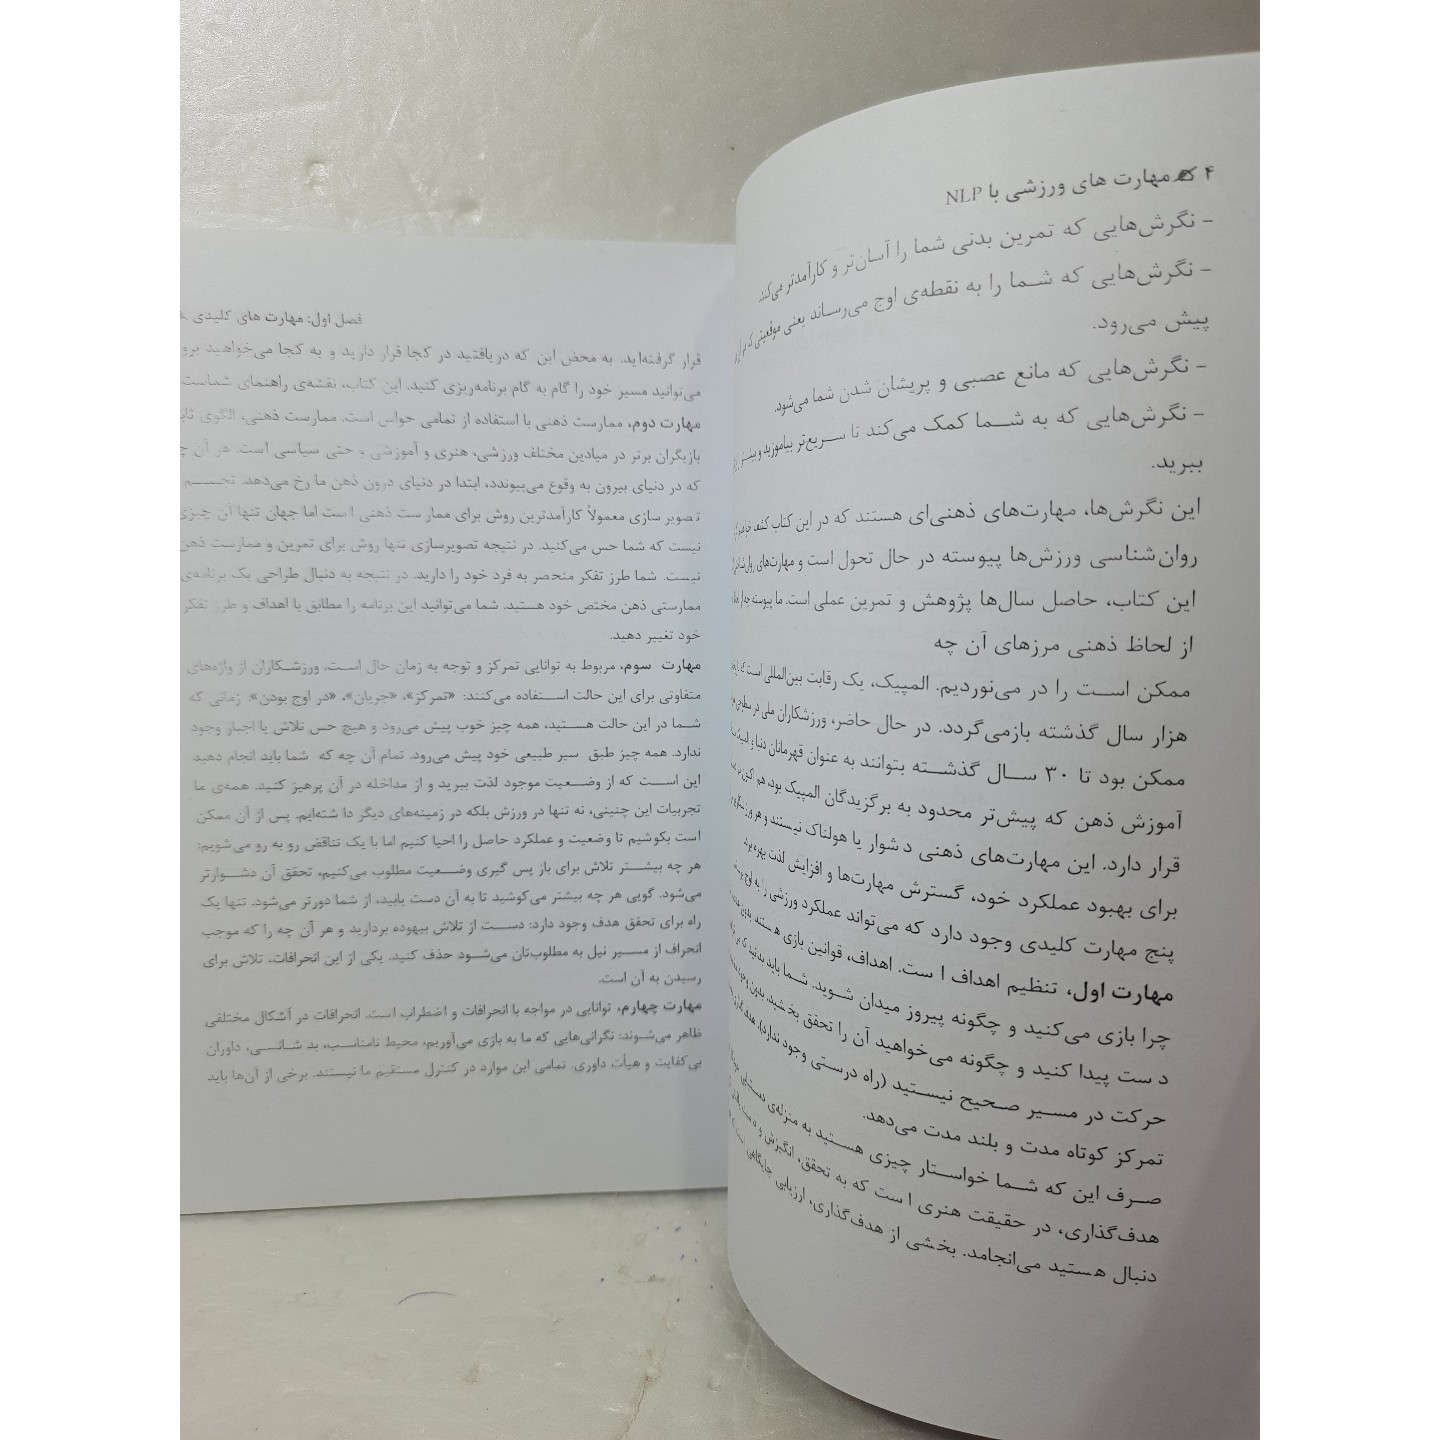 ۴ مهارت های ورزشی با NLP
- نگرش‌هایی که تمرین بدنی شما را آسان‌تر و کارآمدتر می‌کند.
- نگرش‌هایی که شما را به نقطه‌ی اوج می‌رساند یعنی موقعیتی که در آن
پیش می‌رود.
- نگرش‌هایی که مانع عصبی و پریشان شدن شما می‌شود.
- نگرش‌هایی که به شما کمک می‌کند تا سریع‌تر بیاموزید و بیشتر
ببرید.
این نگرش‌ها، مهارت‌های ذهنی‌ای هستند که در این کتاب کشف
روان‌شناسی ورزش‌ها پیوسته در حال تحول است و مهارت‌های
این کتاب، حاصل سال‌ها پژوهش و تمرین عملی است. ما پیوسته
از لحاظ ذهنی مرزهای آن چه
ممکن است را در می‌نوردیم. المپیک، یک رقابت بین‌المللی است که
هزار سال گذشته بازمی‌گردد. در حال حاضر، ورزشکاران ملی در سطوحی
ممکن بود تا ۳۰ سال گذشته بتوانند به عنوان قهرمانان دنیا و المپیک
آموزش ذهن که پیش‌تر محدود به برگزیدگان المپیک بود، هم اکنون
قرار دارد. این مهارت‌های ذهنی د شوار یا هولناک نیستند و هر ورزشکاری
برای بهبود عملکرد خود، گسترش مهارت‌ها و افزایش لذت بهره برد.
پنج مهارت کلیدی وجود دارد که می‌تواند عملکرد ورزشی را به اوج
مهارت اول، تنظیم اهداف ا ست. اهداف، قوانین بازی هستند. بدون
چرا بازی می‌کنید و چگونه پیروز میدان شوید. شما باید بدانید که
د ست پیدا کنید و چگونه می‌خواهید آن را تحقق بخشید. بدون وجود
حرکت در مسیر صحیح نیستید (راه درستی وجود ندارد).
تمرکز کوتاه مدت و بلند مدت می‌دهد.
صرف این که شما خواستار چیزی هستید به منزله‌ی دستیابی
هدف‌گذاری، در حقیقت هنری ا ست که به تحقق، انگیزش و
دنبال هستید می‌انجامد. بخشی از هدف‌گذاری، ارزیابی جایگاهی است
فصل اول: مهارت های کلیدی
قرار گرفته‌اید. به محض این که دریافتید در کجا قرار دارید و به کجا می‌خواهید
می‌توانید مسیر خود را گام به گام برنامه‌ریزی کنید. این کتاب، نقشه‌ی راهنمای شماست
مهارت دوم، ممارست ذهنی با استفاده از تمامی حواس است. ممارست ذهنی، الگوی
بازیگران برتر در میادین مختلف ورزشی، هنری و آموزشی و حتی سیاسی است. هر آن
که در دنیای بیرون به وقوع می‌پیوندد، ابتدا در دنیای درون ذهن ما رخ می‌دهد.
تصویر سازی معمولاً کارآمدترین روش برای ممار ست ذهنی ا ست اما جهان تنها آن چیزی
نیست که شما حس می‌کنید. در نتیجه تصویرسازی تنها روش برای تمرین و ممارست
نیست. شما طرز تفکر منحصر به فرد خود را دارید. در نتیجه به دنبال طراحی یک برنامه‌ی
ممارستی ذهن مختص خود هستید. شما می‌توانید این برنامه را مطابق با اهداف و طرز تفکر
خود تغییر دهید.
مهارت سوم، مربوط به توانایی تمرکز و توجه به زمان حال است. ورزشکاران از واژه‌های
متفاوتی برای این حالت استفاده می‌کنند: «تمرکز»، «جریان»، «در اوج بودن». زمانی که
شما در این حالت هستید، همه چیز خوب پیش می‌رود و هیچ حس تلاش یا اجبار وجود
ندارد. همه چیز طبق سیر طبیعی خود پیش می‌رود. تمام آن چه که شما باید انجام دهید
این است که از وضعیت موجود لذت ببرید و از مداخله در آن پرهیز کنید. همه‌ی ما
تجربیات این چنینی، نه تنها در ورزش بلکه در زمینه‌های دیگر دا شته‌ایم. پس از آن ممکن
است بکوشیم تا وضعیت و عملکرد حاصل را احیا کنیم اما با یک تناقض رو به رو می‌شویم:
هر چه بیشتر تلاش برای باز پس گیری وضعیت مطلوب می‌کنیم، تحقق آن دشوارتر
می‌شود. گویی هر چه بیشتر می‌کوشید تا به آن دست یابید، از شما دورتر می‌شود. تنها یک
راه برای تحقق هدف وجود دارد: دست از تلاش بیهوده بردارید و هر آن چه را که موجب
انحراف از مسیر نیل به مطلوب‌تان می‌شود حذف کنید. یکی از این انحرافات، تلاش برای
رسیدن به آن است.
مهارت چهارم، توانایی در مواجه با انحرافات و اضطراب است. انحرافات در آشکال مختلفی
ظاهر می‌شوند: نگرانی‌هایی که ما به بازی می‌آوریم، محیط نامناسب، بد شانسی، داوران
بی‌کفایت و هیأت داوری. تمامی این موارد در کنترل مستقیم ما نیستند. برخی از آن‌ها باید